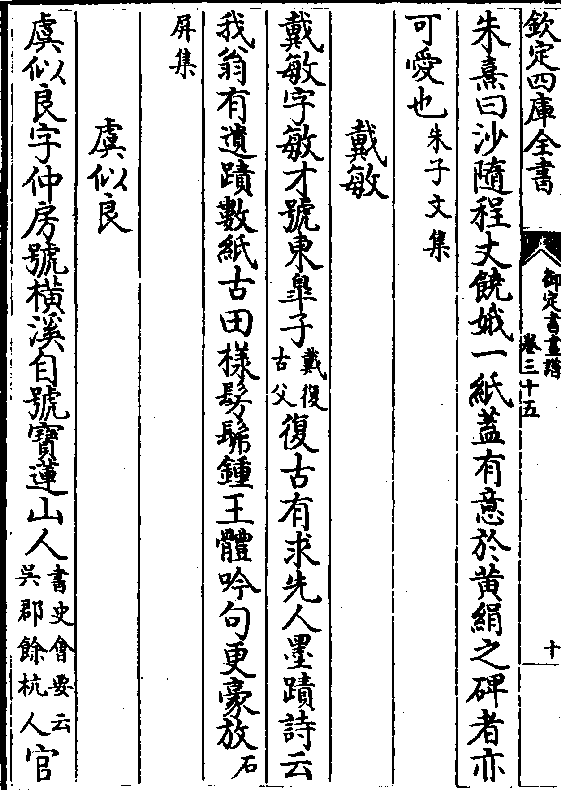 欽定四庫全書
御定書畫譜
卷三十五
十
朱熹曰沙隨程丈饒娥一紙蓋有意於黃絹之碑者亦
可愛也朱子文集
戴敏
戴敏字敏才號東臯子戴復古父復古有求先人墨蹟詩云
我翁有遺蹟數紙古田樣髣髴鍾王體吟句更豪放石
屏集
虞似良
虞似良字仲房號橫溪自號寶蓮山人書史會要云吳郡餘杭人官